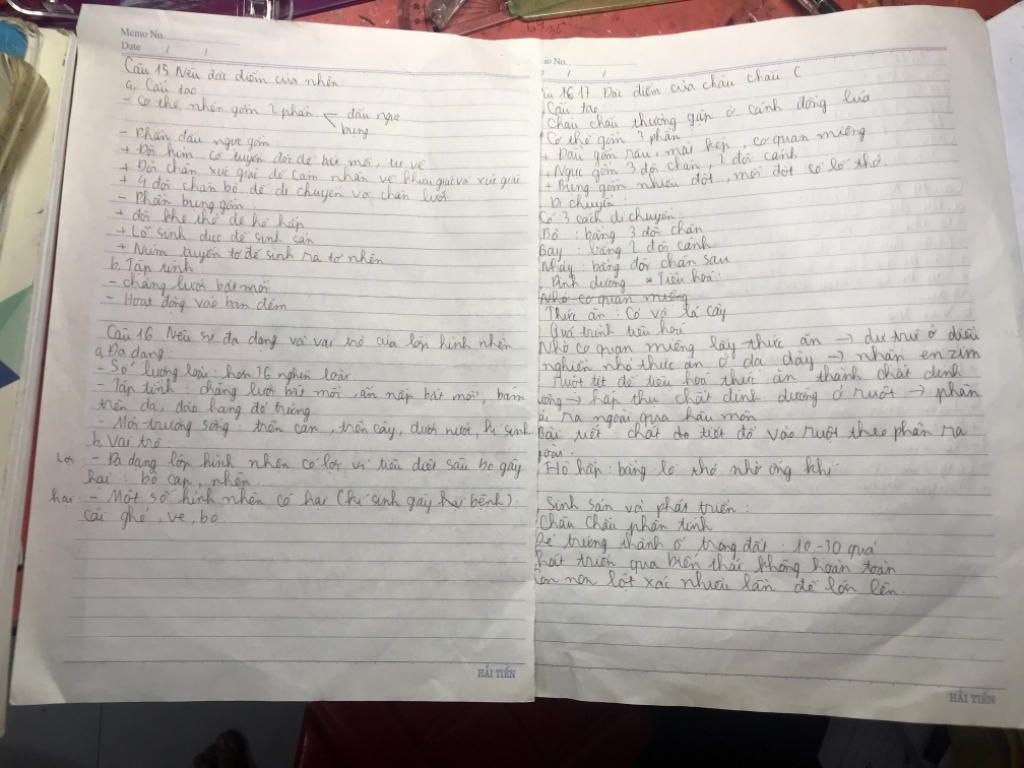 Memo No.
Date / /
Câu 15 Nêu đặc điểm của nhện
a. Cấu tạo
- Cơ thể nhện gồm 2 phần đầu ngực
bụng
- Phần đầu ngực gồm
+ Đôi kìm có tuyến độc để bắt mồi, tự vệ
+ Đôi chân xúc giác để cảm nhận về khứu giác và xúc giác
+ 4 đôi chân bò để di chuyển và chăn lưới
- Phần bụng gồm
+ đôi khe thở để hô hấp
+ Lỗ sinh dục để sinh sản
+ Núm tuyến tơ để sinh ra tơ nhện
b. Tập tính
- chăng lưới bắt mồi
- Hoạt động vào ban đêm
Câu 16 Nêu sự đa dạng và vai trò của lớp hình nhện
a. Đa dạng
- Số lượng loài: hơn 36 nghìn loài
- Tập tính: chăng lưới bắt mồi, ẩn nấp bắt mồi, bám
trên da, đào hang đẻ trứng
- Môi trường sống: trên cạn, trên cây, dưới nước, kí sinh
b. Vai trò
Lợi: - Đa dạng lớp hình nhện có lợi vì tiêu diệt sâu bọ gây
hại: bò cạp, nhện...
hại - Một số hình nhện có hại (kí sinh gây hại bệnh).
cái ghẻ, ve, bò
No.
/ /
16 17 Đặc điểm của châu chấu C
Cấu tạo
Châu chấu thường gặp ở cánh đồng lúa
Cơ thể gồm 3 phần
+ Đầu gồm râu, mắt kép, cơ quan miệng
+ Ngực gồm 3 đôi chân, 2 đôi cánh
+ Bụng gồm nhiều đốt, mỗi đốt có lỗ thở.
Di chuyển:
Có 3 cách di chuyển
Bò: bằng 3 đôi chân
Bay: bằng 2 đôi cánh
Nhảy: bằng đôi chân sau
Dinh dưỡng * Tiêu hoá:
Nhờ cơ quan miệng
Thức ăn: Cỏ và lá cây
Quá trình tiêu hoá
Nhờ cơ quan miệng lấy thức ăn → dự trữ ở diều
nghiền nhỏ thức ăn ở dạ dày → nhận enzim
ruột tịt để tiêu hoá thức ăn thành chất dinh
→ hấp thụ chất dinh dưỡng ở ruột → phân
ra ngoài qua hậu môn
Bài tiết: chất do tiết đổ vào ruột theo phân ra
Hô hấp: bằng lỗ thở nhờ ống khí
Sinh sản và phát triển:
Châu Chấu phân tính
Đẻ trứng thành ổ trong đất: 10-30 quả
Phát triển qua biến thái không hoàn toàn
non lột xác nhiều lần để lớn lên.
HẢI TIẾN
HẢI TIẾN